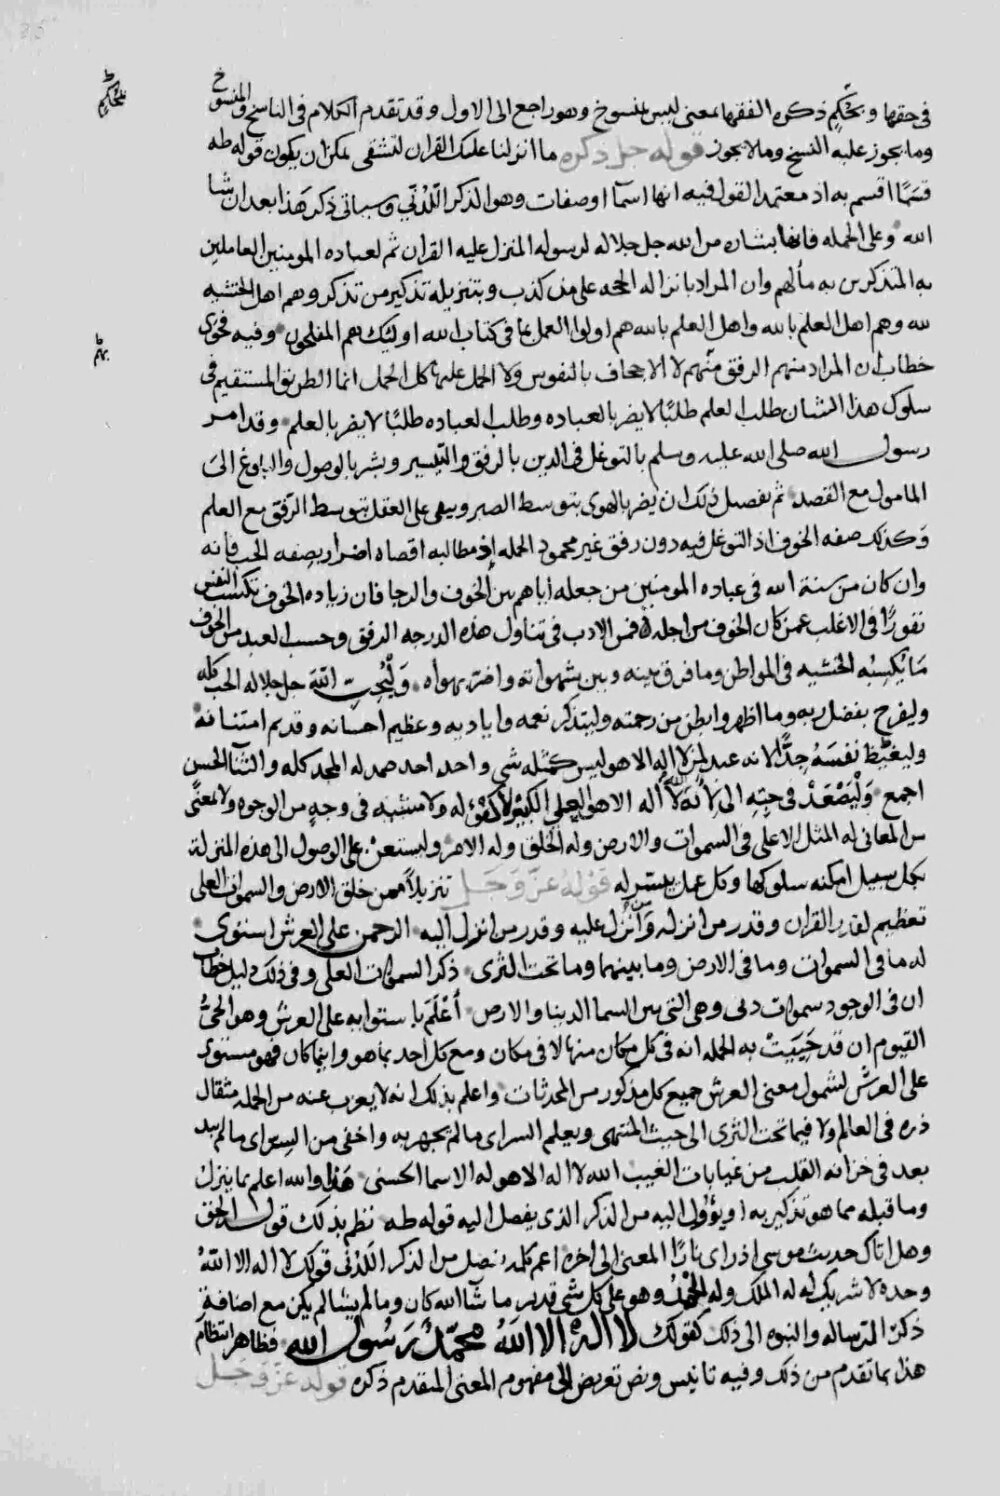 في حقها ويحكم ذكره الفقها بمعنى ليس بمنسوخ وهو راجع الى الاول وقد تقدم الكلام في الناسخ والمنسوخ
وما يجوز عليه النسخ وما لا يجوز قوله جل ذكره ما انزلنا عليك القران لتشقى يمكن ان يكون قوله طه
قسمًا اقسم به اذ معتمد القول فيه انها اسمآ او صفات وهو الذكر اللدني وسياتي ذكر هذا بعد ان شا
الله وعلى الجمله فانها بشاره من الله جل جلاله لرسوله المنزل عليه القران ثم لعباده المومنين العاملين
به المتذكرين به مألهم وان المراد بانزاله الحجه على من كذب وبتنزيله تذكير من تذكر وهم اهل الخشيه
لله وهم اهل العلم بالله واهل العلم بالله هم اولوا العمل بما في كتاب الله اوليك هم المفلحون وفيه فحوى
خطاب ان المراد منهم الرفق منهم لا الاجحاف بالنفوس ولا الحمل عليها كل الحمل انما الطريق المستقيم في
سلوك هذا الشان طلب العلم طلبًا لا يضر بالعباده وطلب العباده طلبًا لا يضر بالعلم وقد امر
رسول الله صلى الله عليه وسلم بالتوغل في الدين بالرفق والتيسير وبشر بالوصول والبلوغ الى
المامول مع القصد ثم تفصيل ذلك ان يضر بالهوى بتوسط الصبر ويبقى على العقل بتوسط الرفق مع العلم
وكذلك صفه الخوف اذ التوغل فيه دون رفق غير محمود الجمله اذ مطالبه اقصاه اضرار بصفه الحب فانه
وان كان من سنة الله في عباده المومنين من جعله اياهم بين الخوف والرجا فان زياده الخوف تكسب النفس
نفورًا في الاغلب عمن كان الخوف من اجله فمن الادب في تناول هذه الدرجه الرفق وحسب العبد من الخوف
ما يكسبه الخشيه في المواطن وما فرق بينه وبين شهواته واضر بهواه وليحب الله جل جلاله الحب كله
وليفرح بفضل ربه وما اظهر وابطن من رحمته وليتذكر نعمه واياديه وعظيم احسانه وقديم امتنانه
وليغبط نفسه جدًّا لانه عبد لمن لا اله الا هو ليس كمثله شي واحد احد صمد له المجد كله والثنآ الحسن
اجمع وليصعد في حبه الى لانه لا اله الا هو العلي الكبير لا كفؤ له ولا مشبه في وجهٍ من الوجوه ولا معنى
من المعاني له المثل الاعلى في السموات والارض وله الخلق وله الامر وليستعن على الوصول الى هذه المنزلة
بكل سبيل امكنه سلوكها وكل عمل ييسر له قوله عز وجل تنزيلاً ممن خلق الارض والسموات العلى
تعظيم لقدر القران وقدر من انزله ومن أنزل عليه وقدر من انزل اليه الرحمن على العرش استوى
له ما في السموات وما في الارض وما بينهما وما تحت الثرى ذكر السموات العلى وفي ذلك دليل خطاب
ان في الوجود سموات دنى وهي التي بين السما الدنيا والارض أعلم باستوايه على العرش وهو الحي
القيوم ان قد حييت به الجمله انه في كل مكان منها لا في مكان ومع كل احد بما هو واينما كان فهو مستوى
على العرش لشمول معنى العرش جميع كل مذكور من المحدثات واعلم بذلك انه لا يعزب عنه من الجمله مثقال
ذره في العالم ولا فيما تحت الثرى الى حيث المنتهى ويعلم السر اى ما لم يجهر به واخفى من السر اى ما لم يبد
بعد في خزانه القلب من غيابات الغيب الله لا اله الا هو له الاسما الحسنى هذا والله اعلم بما ينزل
وما قبله مما هو تذكير به او يؤول اليه من الذكر الذى يفصل اليه قوله طه نظم بذلك قوله الحق
وهل اتاك حديث موسى اذ راى نارًا المعنى الى اخره اعم كله فصل من الذكر اللدني قولك لا اله الا الله
وحده لا شريك له له الملك وله الحمد وهو على كل شي قدير ما شآ الله كان وما لم يشا لم يكن مع اضافة
ذكر الرساله والنبوه الى ذلك كقولك لا اله الا الله محمد رسول الله فظاهر انتظام
هذا بما تقدم من ذلك وفيه تانيس ونص تعريض الى مفهوم المعنى المتقدم ذكره قوله عز وجل